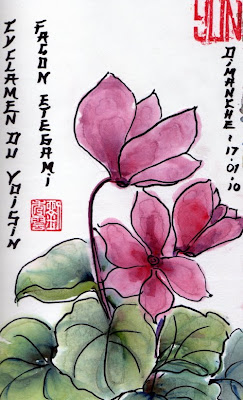 CYCLAMEN DU VOISIN
FAÇON ETEGAMI
YUN
DIMANCHE · 17 · 01 · 10